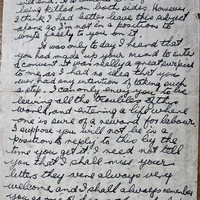 being killed on both sides. However
I think I had better leave this subject
alone as I'm not in a position to
write freely to you on it.
It was only to day I heard that
you had made up your mind to enter
a convent. It was really a great surprise
to me, as I had no idea that you
ever had any intention of taking such
a step. I can only envy you to be
leaving all the troubles of the
world, and entering a life where
one is sure of a reward for labour
I suppose you will not be in a
position to reply to this by the
time you get it. I need not tell
you that I shall miss your
letters they were always very
welcome and I shall always remember
you as one of